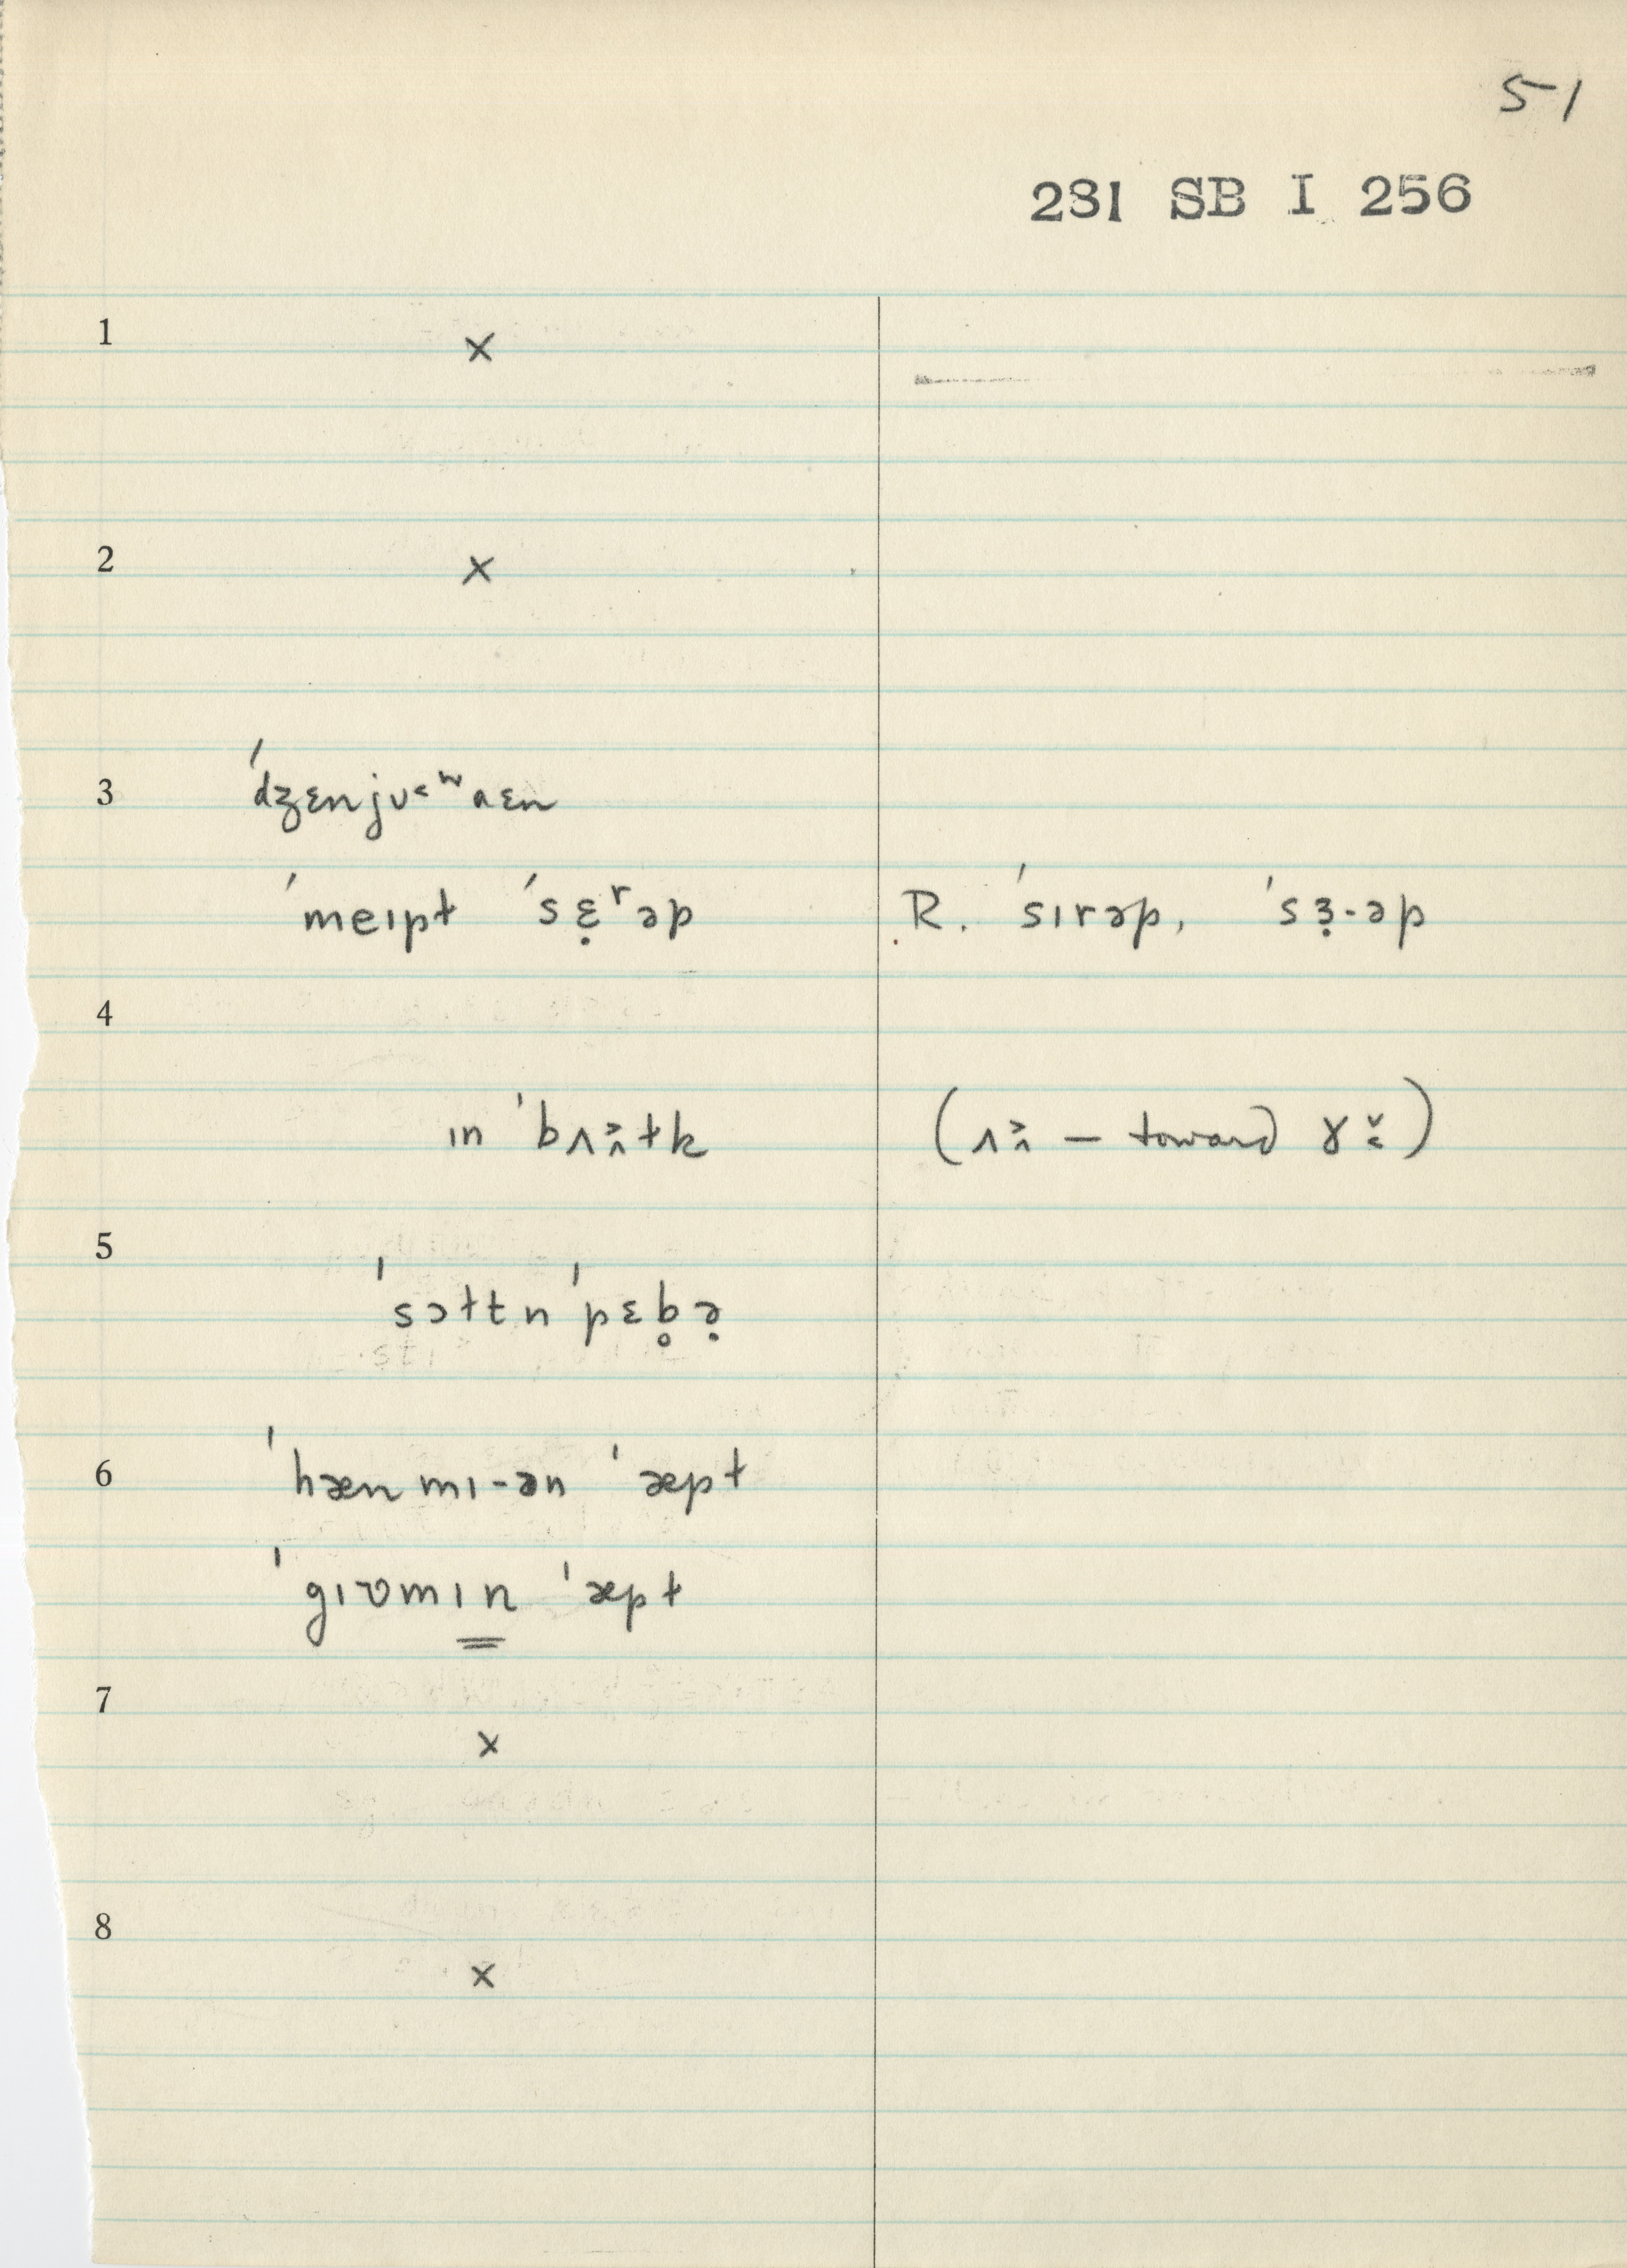 51
281 SB I 256
1 ×
2 ×
3 ˈdʒɛnjʊ˂ʷaɛn
ˈmeɪpɫ ˈsɛ̣ʳəp R. ˈsɪrəp, ˈsɜ̣·əp
4
ɪn ˈbʌ˃˄ɫk (ʌ˃˄ — toward ɤ˅˂)
5
ˈsɔɫtn ˈpɛb̥ə̣
6 ˈhænmɪ-ən ˈæpɫ
ˈgɪʊmɪn ˈæpɫ
7
×
8
×